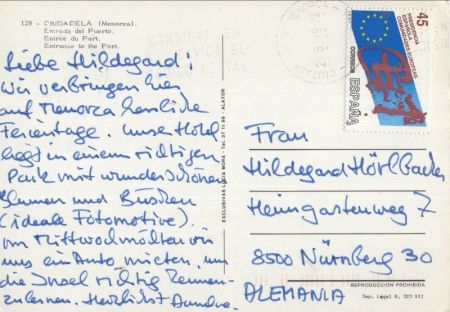 129 - CIUDADELA (Menorca).
Entrada del Puerto.
Entrée du Port.
Entrance to the Port.
Liebe Hildegard!
Wir verbringen hier
auf Menorca herrliche
Ferientage. Unser Hotel
liegt in einem richtigen
Park mit wunderschönen
Blumen und Büschen
(ideale Fotomotive).
Am Mittwoch möchten wir
uns ein Auto mieten, um
die Insel richtig kennen-
zulernen. Herzlichst
EXCLUSIVAS
Tel. 37 11 90 - ALAYOR
45
PRESIDENCIA
ESPAÑOLA
COMUNIDADES EUROPEAS
CORREOS
ESPAÑA
MENORCA
Frau
Hildegard Hörlbacher
Heimgartenweg 7
8500 Nürnberg 30
ALEMANIA
REPRODUCCION PROHIBIDA
Dep. Legal B. 323 XII